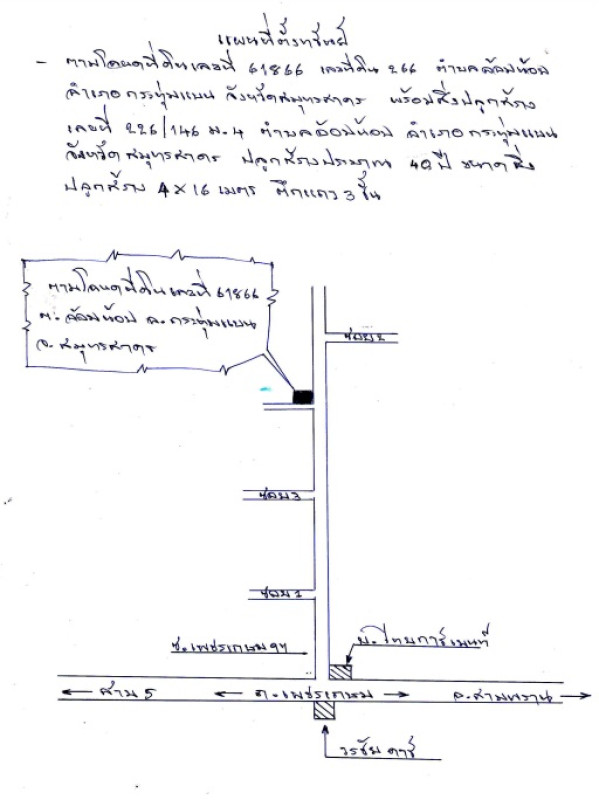 แผนที่ตั้งทรัพย์
- ตามโฉนดที่ดินเลขที่ 61866 เลขที่ดิน 266 ตำบลอ้อมน้อย
อำเภอกระทุ่มแบน จังหวัดสมุทรสาคร พร้อมสิ่งปลูกสร้าง
เลขที่ 226/146 ม.4 ตำบลอ้อมน้อย อำเภอกระทุ่มแบน
จังหวัดสมุทรสาคร ปลูกสร้างประมาณ 40 ปี ขนาดสิ่ง
ปลูกสร้าง 4x16 เมตร ตึกแถว 3 ชั้น
ตามโฉนดที่ดินเลขที่ 61866
ต.อ้อมน้อย อ.กระทุ่มแบน
จ.สมุทรสาคร
ซอย 2
ซอย 3
ซอย 1
ซ.เพชรเกษม 97
บ.ไทยการ์เมนท์
สาย 5
ถ.เพชรเกษม
อ.สามพราน
วรชัย คาร์